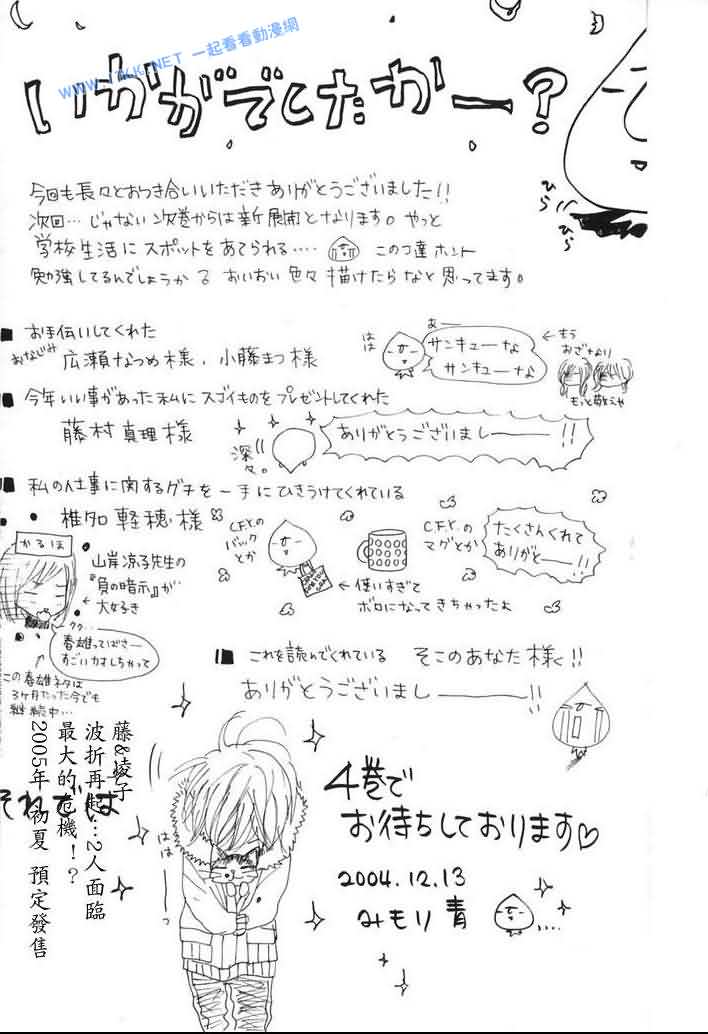 WWW.17KK.NET 一起看看動漫網
いかがでしたかー？
ひらひら
今回も長々とおつき合いいただきありがとうございました!!
次回…じゃない次巻からは新展開となります。やっと
学校生活にスポットをあてられる‥‥
このコ達ホント
勉強してるんでしょうか
おいおい色々描けたらなと思ってます。
■ お手伝いしてくれた
おなじみ 広瀬なつめ様、小藤まつ様
はは
あー
サンキューな
サンキューな
←もう
おざなり
もっと敬えや
■ 今年いい事があった私にスゴイものをプレゼントしてくれた
藤村真理様
深々。
ありがとうございましー!!
■ 私の仕事に関するグチを一手にひきうけてくれている
椎名軽穂様
C.F.Y.の
バックとか
C.F.Y.の
マグとか
たくさんくれて
ありがとー!!
←使いすぎて
ボロになってきちゃったよ
かるほ
山岸凉子先生の
『負の暗示』が‥
大好き
クク‥
春雄ってばさー
すごいカオしちゃって
この春雄ネタは
3ヶ月たった今でも
継続中…
■ これを読んでくれている そこのあなた様く!!
ありがとうございましー!!
藤&凌子
波折再起…2人面臨
最大的危機！？
2005年 初夏 預定發售
それでは
ははーっ
4巻で
お待ちしております♡
2004.12.13
みもり青